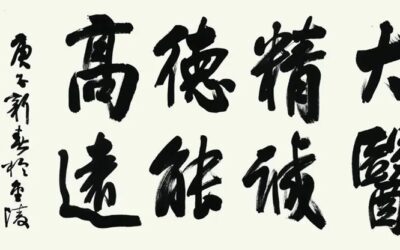 大醫
精誠
德能
高遠
庚子新春於金陵